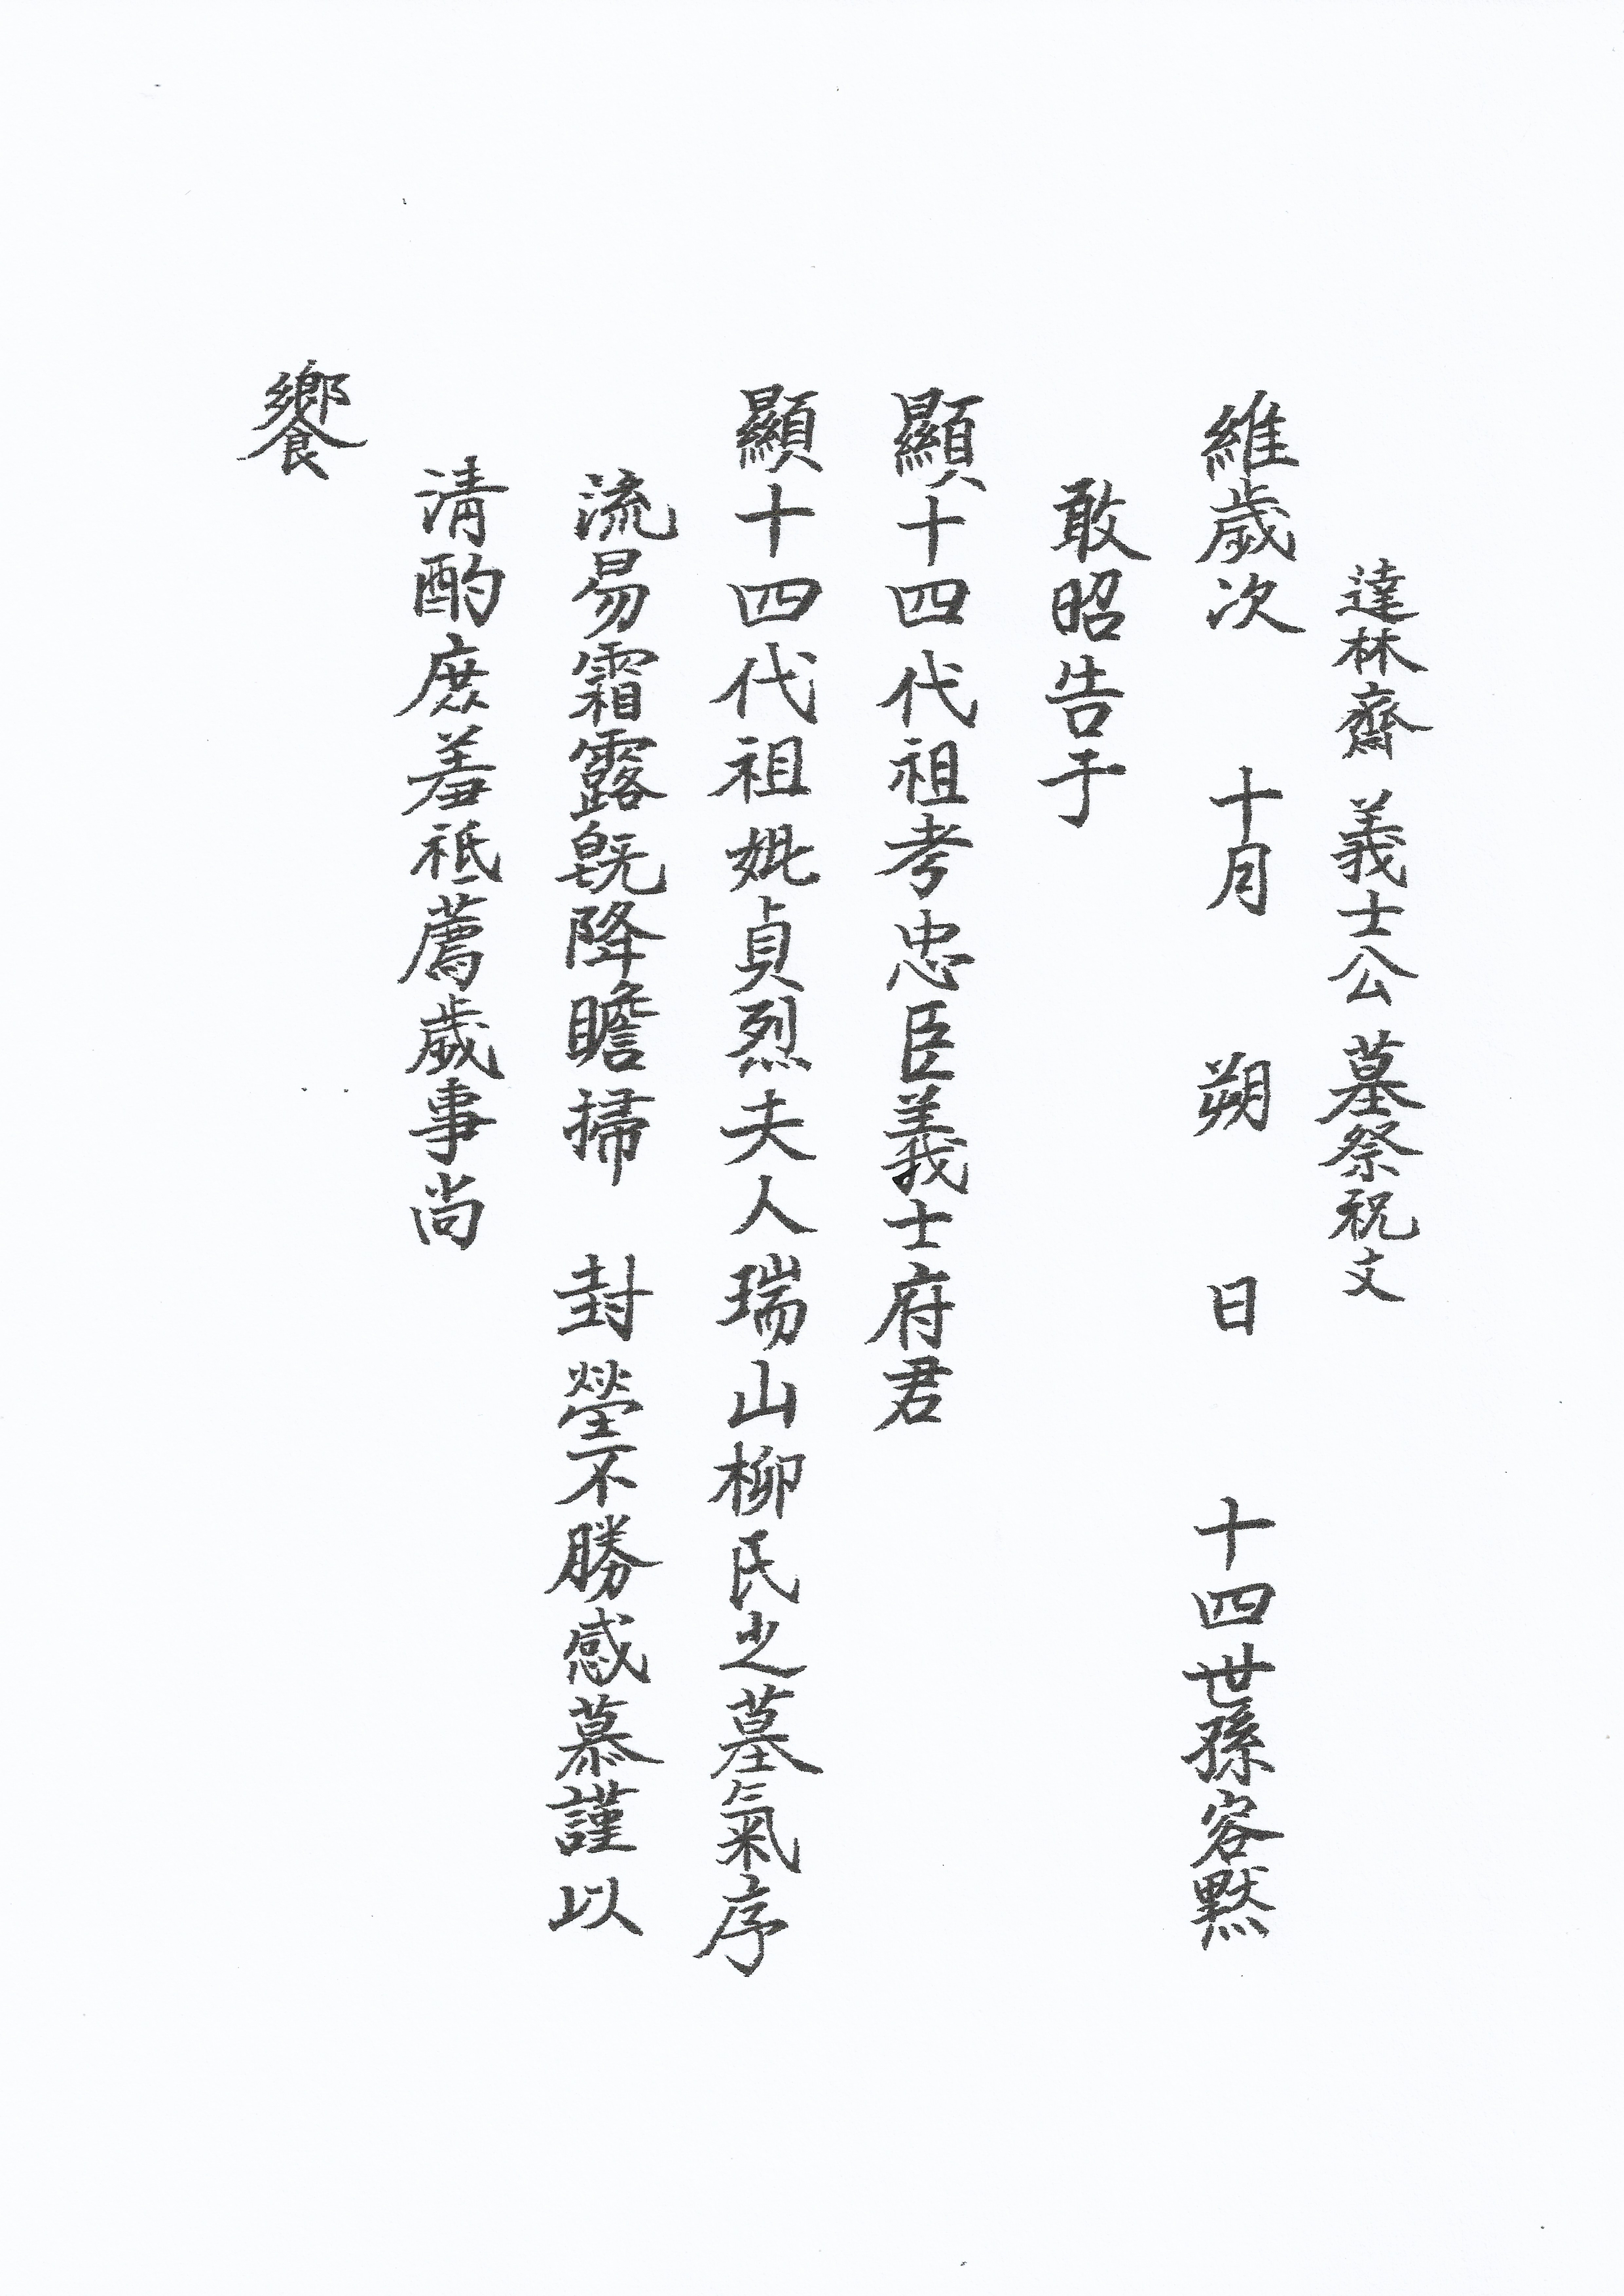 達林齋 義士公 墓祭祝文
維歲次 十月 朔 日 十四世孫容黙
敢昭告于
顯十四代祖考忠臣義士府君
顯十四代祖妣貞烈夫人瑞山柳氏之墓氣序
流易霜露旣降瞻掃 封塋不勝感慕謹以
淸酌庶羞祗薦歲事尚
饗